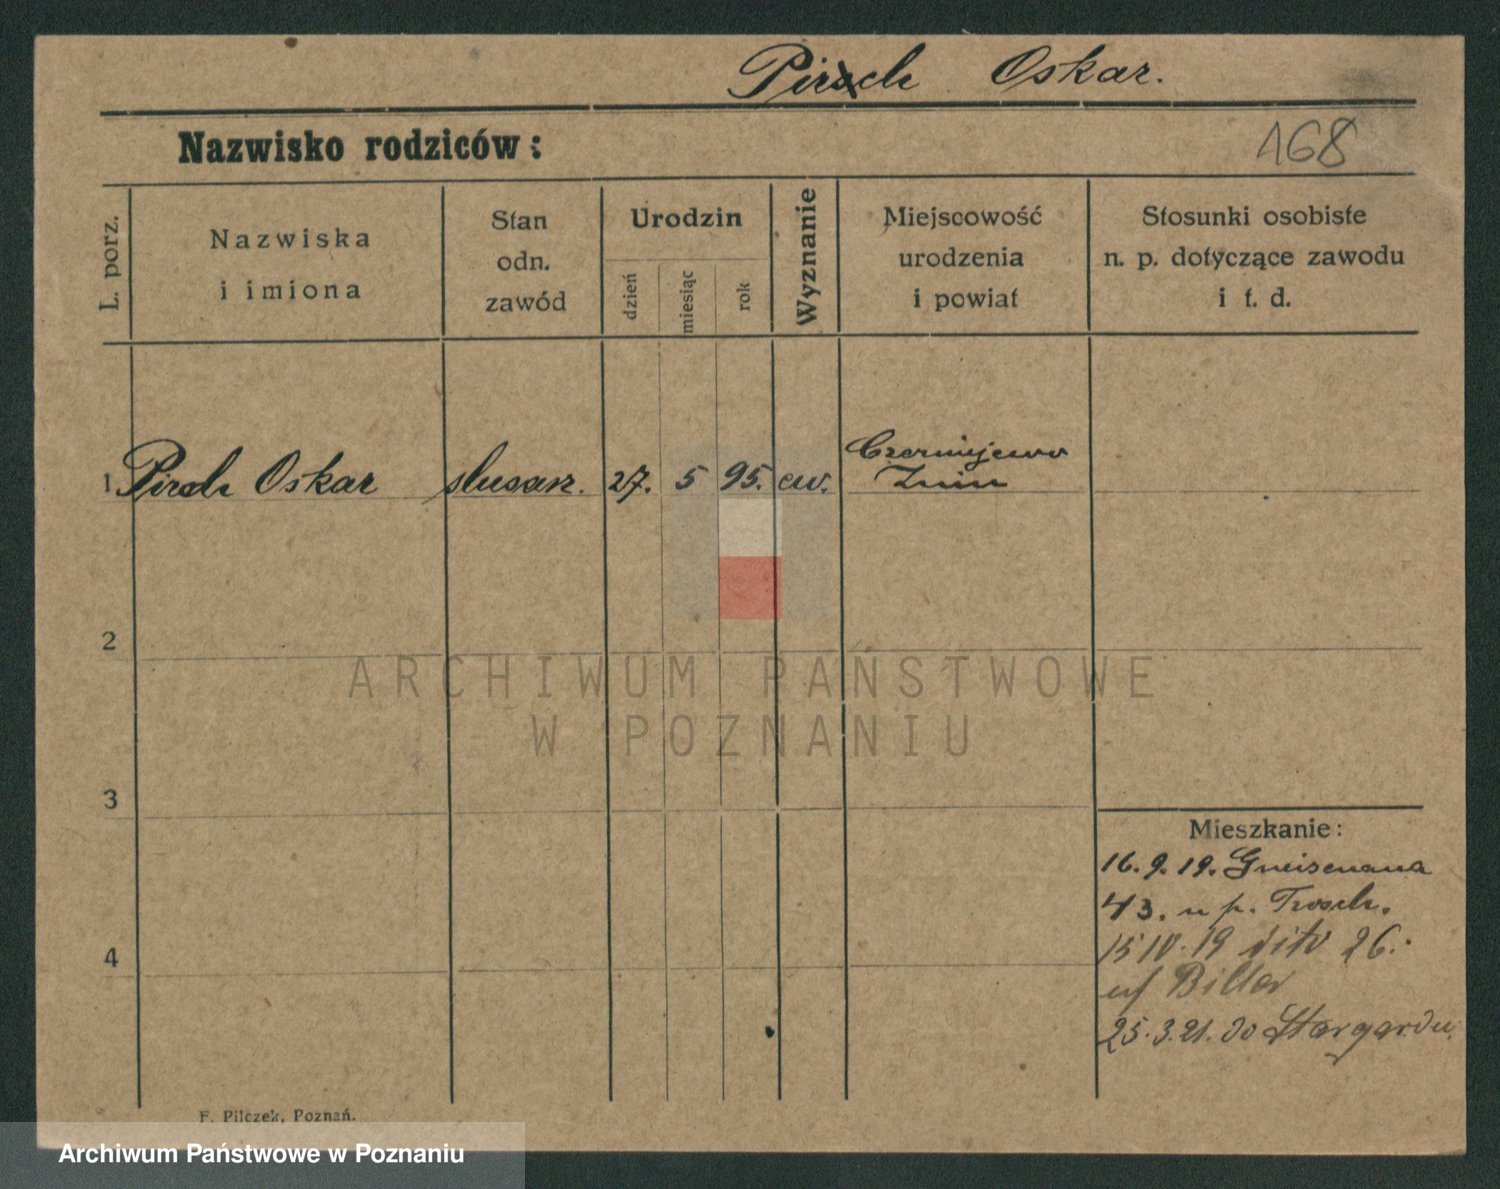 Pirsch Oskar.
Nazwisko rodziców:
168
L. porz.
Nazwiska
i imiona
Stan
odn.
zawód
Urodzin
dzień
miesiąc
rok
Wyznanie
Miejscowość
urodzenia
i powiat
Stosunki osobiste
n. p. dotyczące zawodu
i t. d.
1 Pirsch Oskar 27. 5 95. ew. Czerniejewo
Żnin
2
ARCHIWUM PAŃSTWOWE
W POZNANIU
3
Mieszkanie:
16. 9. 19. Gneisenaua
43. u p. Trosch.
4
15 IV. 19 dito 26.
Biller
25. 3. 21. do Stargardu.
F. Pilczek, Poznań.
Archiwum Państwowe w Poznaniu